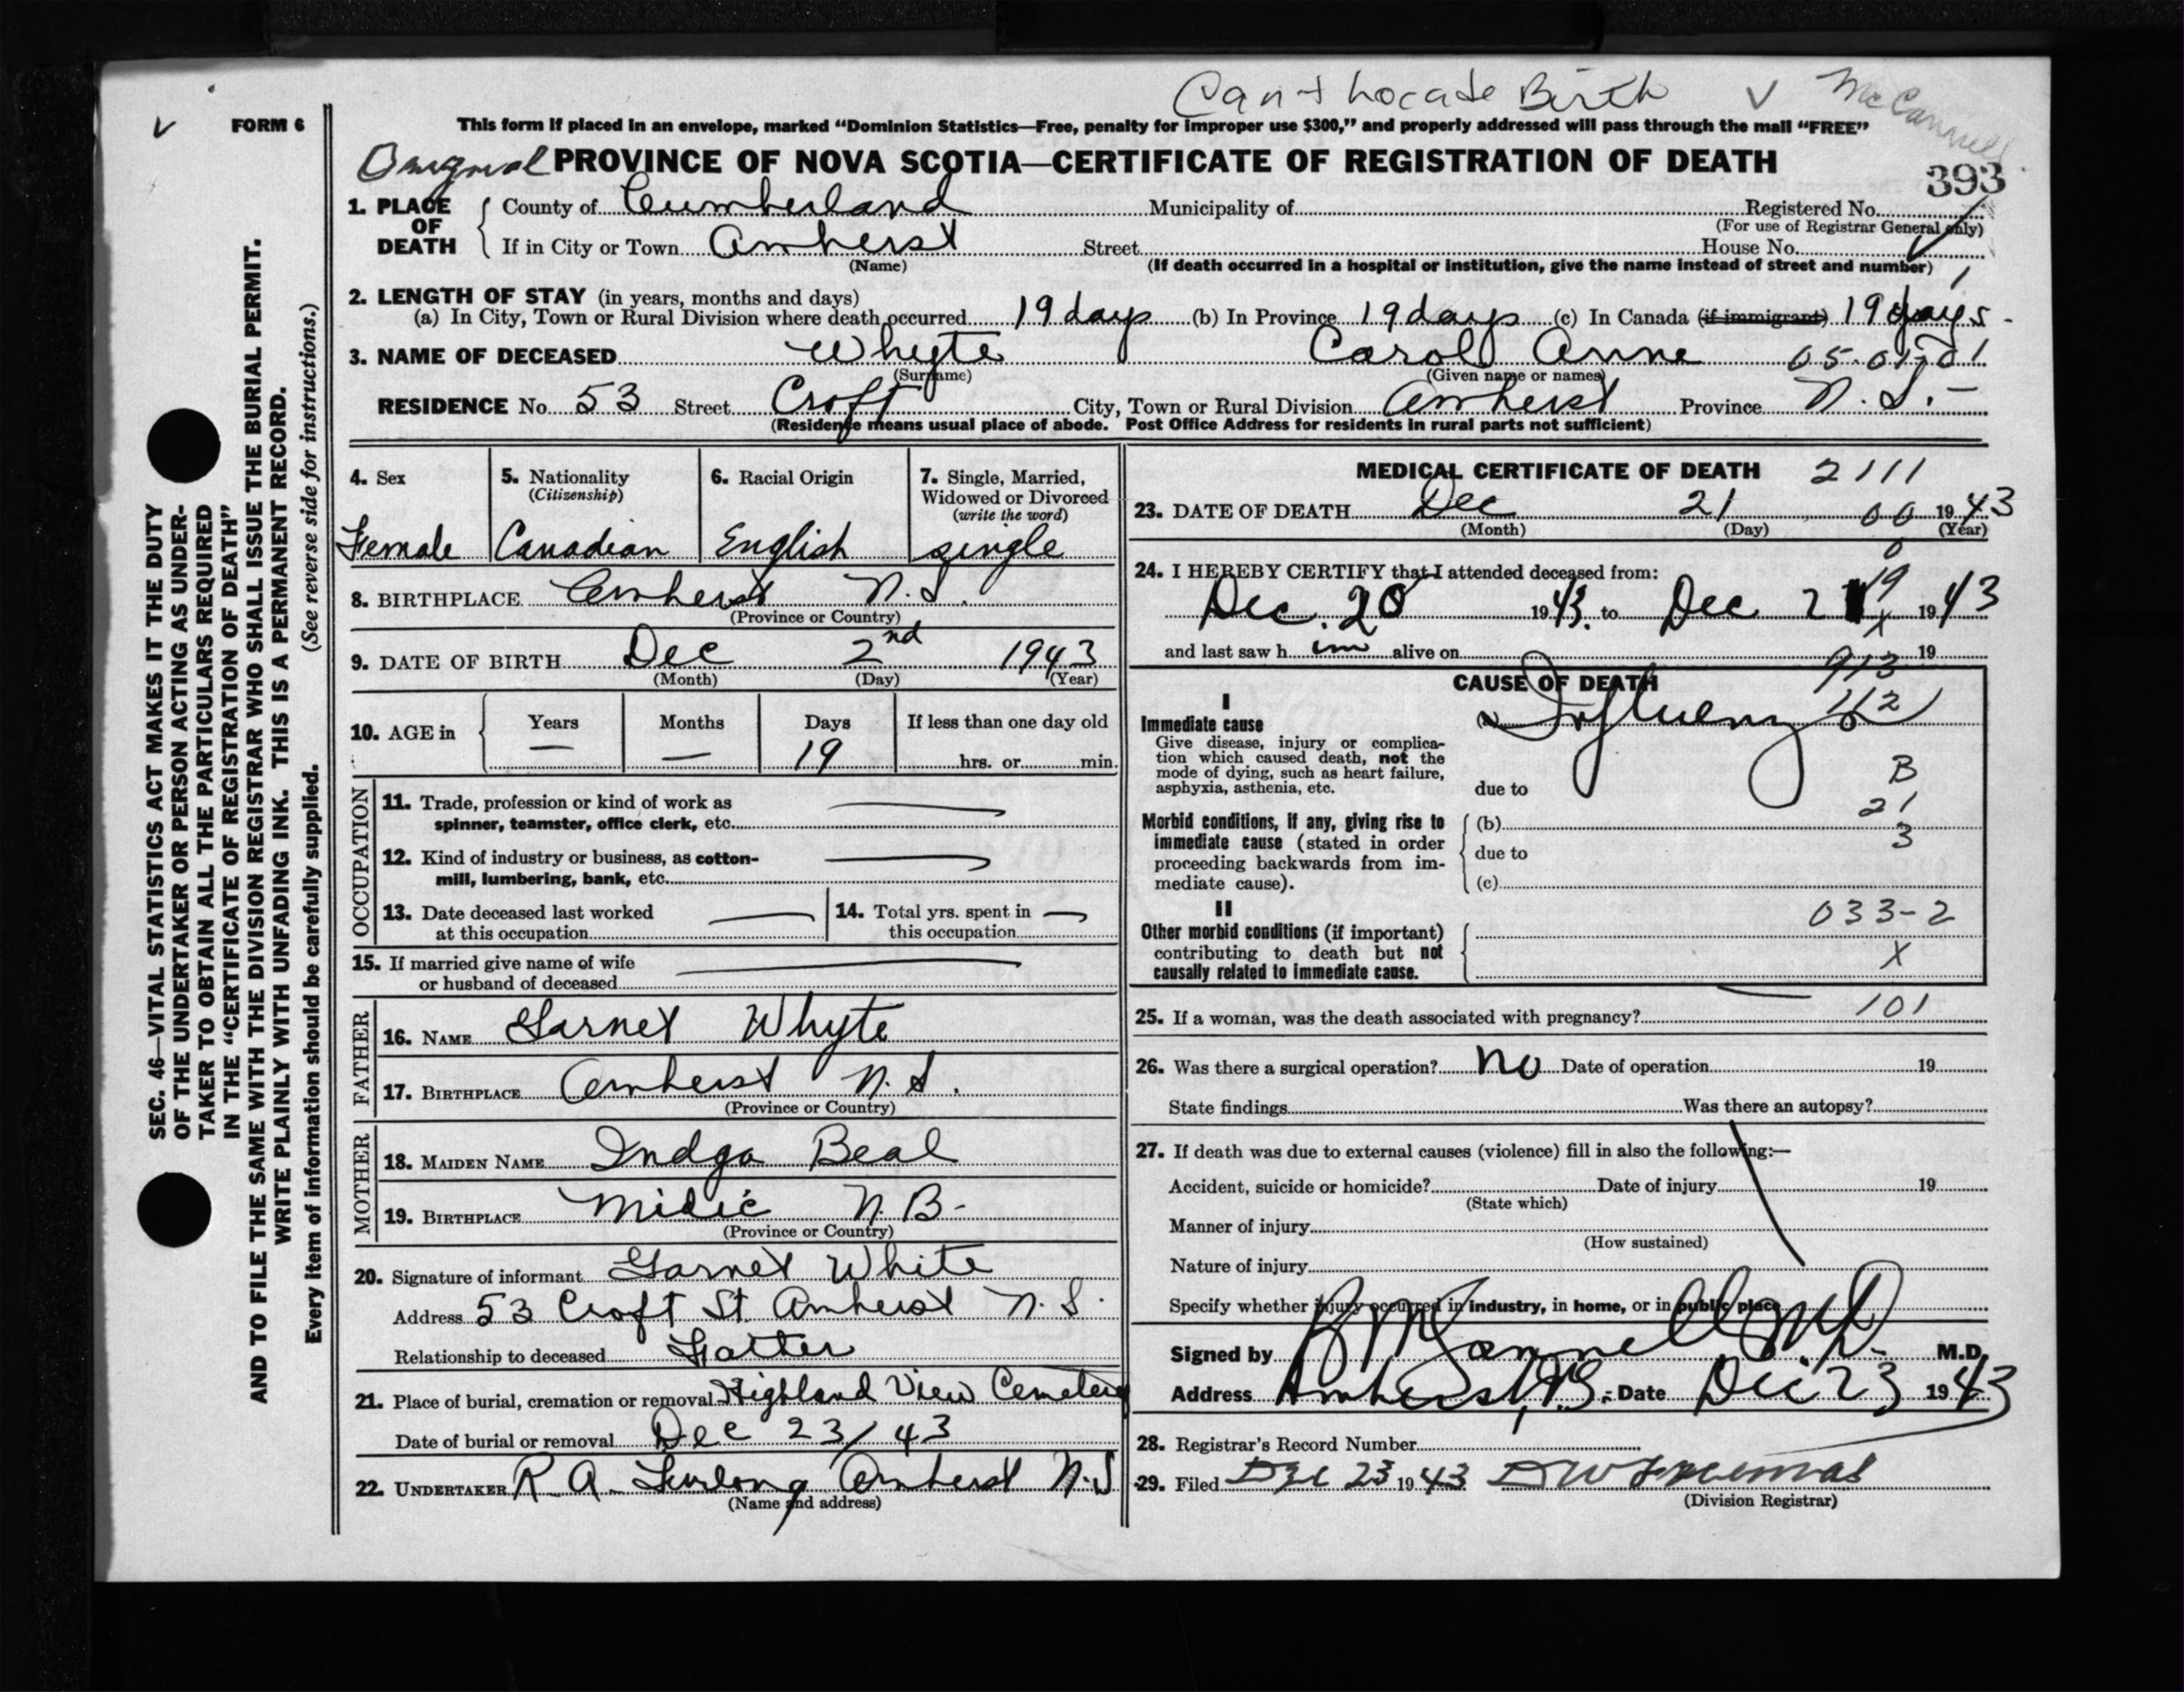 Can't Locate Birth V McCannell
V FORM 6
This form if placed in an envelope, marked "Dominion Statistics—Free, penalty for improper use $300," and properly addressed will pass through the mail "FREE"
Original PROVINCE OF NOVA SCOTIA—CERTIFICATE OF REGISTRATION OF DEATH
393
1. PLACE OF DEATH County of Cumberland Municipality of Registered No.
(For use of Registrar General only)
If in City or Town Amherst Street House No.
(Name) (If death occurred in a hospital or institution, give the name instead of street and number)
2. LENGTH OF STAY (in years, months and days)
(a) In City, Town or Rural Division where death occurred 19 days (b) In Province 19 days (c) In Canada (if immigrant) 19 days
3. NAME OF DECEASED Whyte Carol Anne 05.01.01
(Surname) (Given name or names)
RESIDENCE No. 53 Street Croft City, Town or Rural Division Amherst Province N.S.
(Residence means usual place of abode. Post Office Address for residents in rural parts not sufficient)
4. Sex
Female
5. Nationality
(Citizenship)
Canadian
6. Racial Origin
English
7. Single, Married,
Widowed or Divorced
(write the word)
single
8. BIRTHPLACE Amherst N.S.
(Province or Country)
9. DATE OF BIRTH Dec 2nd 1943
(Month) (Day) (Year)
10. AGE in Years Months Days If less than one day old
— — 19 hrs. or min.
OCCUPATION
11. Trade, profession or kind of work as
spinner, teamster, office clerk, etc.
12. Kind of industry or business, as cotton-
mill, lumbering, bank, etc.
13. Date deceased last worked
at this occupation
14. Total yrs. spent in
this occupation
15. If married give name of wife
or husband of deceased
FATHER
16. NAME Garnet Whyte
17. BIRTHPLACE Amherst N.S.
(Province or Country)
MOTHER
18. MAIDEN NAME Indga Beal
19. BIRTHPLACE Midic N.B.
(Province or Country)
20. Signature of informant Garnet White
Address 53 Croft St. Amherst N.S.
Relationship to deceased Father
21. Place of burial, cremation or removal Highland View Cemetery
Date of burial or removal Dec 23/43
22. UNDERTAKER R. A. Furlong Amherst N.S
(Name and address)
MEDICAL CERTIFICATE OF DEATH 2111
23. DATE OF DEATH Dec 21 00 1943
(Month) (Day) (Year)
24. I HEREBY CERTIFY that I attended deceased from:
Dec. 20 1943. to Dec 2 19 1943
and last saw h im alive on 19
CAUSE OF DEATH 913
112
I
Immediate cause (a) Influenza
Give disease, injury or complica-
tion which caused death, not the
mode of dying, such as heart failure,
asphyxia, asthenia, etc.
due to B
21
Morbid conditions, if any, giving rise to
immediate cause (stated in order
proceeding backwards from im-
mediate cause).
(b) 3
due to
(c)
II 033-2
Other morbid conditions (if important)
contributing to death but not
causally related to immediate cause.
X
25. If a woman, was the death associated with pregnancy? 101
26. Was there a surgical operation? No Date of operation 19
State findings Was there an autopsy?
27. If death was due to external causes (violence) fill in also the following:—
Accident, suicide or homicide? Date of injury 19
(State which)
Manner of injury
(How sustained)
Nature of injury
Specify whether injury occurred in industry, in home, or in public place
Signed by McCannell M.D. M.D.
Address Amherst, N.S. Date Dec 23 1943
28. Registrar's Record Number
29. Filed Dec 23 1943
(Division Registrar)
SEC. 46—VITAL STATISTICS ACT MAKES IT THE DUTY
OF THE UNDERTAKER OR PERSON ACTING AS UNDER-
TAKER TO OBTAIN ALL THE PARTICULARS REQUIRED
IN THE "CERTIFICATE OF REGISTRATION OF DEATH"
AND TO FILE THE SAME WITH THE DIVISION REGISTRAR WHO SHALL ISSUE THE BURIAL PERMIT.
WRITE PLAINLY WITH UNFADING INK. THIS IS A PERMANENT RECORD.
Every item of information should be carefully supplied. (See reverse side for instructions.)